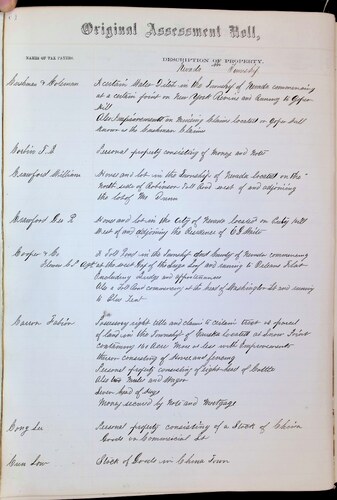 Original Assessment Roll,
NAMES OF TAX PAYERS.
DESCRIPTION OF PROPERTY.
Nevada Township
Cashman & Coleman
A certain Water Ditch in the Township of Nevada commencing
at a certain point on New York Ravine and running to Gopher
Hill
Also Improvements on Mining Claims located on Gopher Hill
known as the Cashman Claims
Personal property consisting of Money and Note
Crawford William
House and lot in the Township of Nevada located on the
North side of Robinson Toll Road west of and adjoining
the lot of Mr Dunn
Crawford Geo
House and lot in the City of Nevada located on
West of and adjoining the Residence of
Cooper & Co
A Toll Road in the Township and County of Nevada commencing
at the west and running to
Including and appurtenances
Also a Toll Road commencing at the head of Washington St and running
to Blue Tent
Carson Fabian
Possessory right title and claim to certain tract or parcel
of land in the Township of Nevada located at Snow Point
containing 160 Acres More or less with Improvements
thereon consisting of House and fencing
Personal property consisting of eight head of Cattle
Also two Mules and Wagon
Seven head of Hogs
Money secured by Note and Mortgage
Cong Lee
Personal property consisting of a Stock of China
Goods on Commercial St
Chun Low
Stock of Goods in China Town